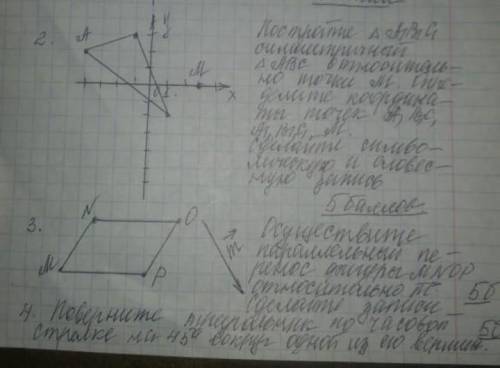 2.
A
y
M
x
Постройте △A₁B₁C₁
симметричный
△ABC относитель-
но точки M. Опре-
делите координа-
ты точек A, B, C,
A₁, B₁, C₁, M.
Сделайте симво-
лическую и словес-
ную запись
5 баллов
3.
N
O
M
P
m
Осуществите
параллельный пе-
ренос фигуры MNOP
относительно m
Сделайте записи
5б
4. Поверните треугольник по часовой
стрелке на 45° вокруг одной из его вершин.
5б